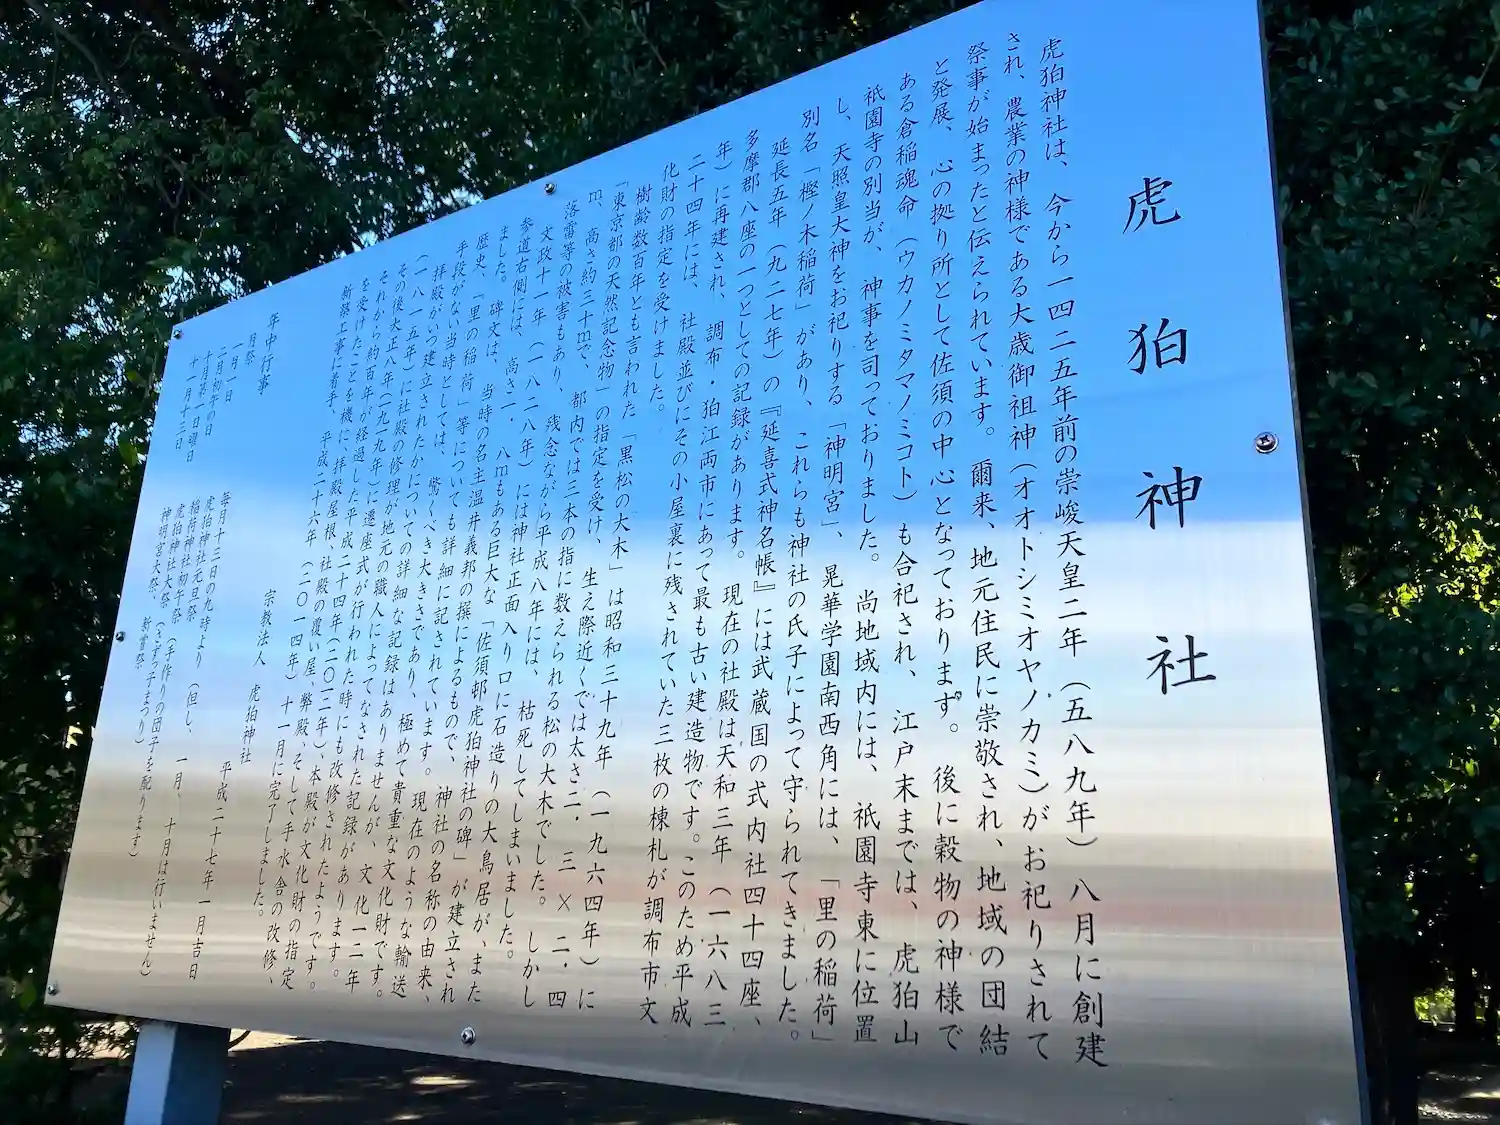 虎狛神社
虎狛神社は、今から一四二五年前の崇峻天皇二年（五八九年）八月に創建
され、農業の神様である大歳御祖神（オオトシミオヤノカミ）がお祀りされて
祭事が始まったと伝えられています。爾来、地元住民に崇敬され、地域の団結
と発展、心の拠り所として佐須の中心となっております。後に穀物の神様で
ある倉稲魂命（ウカノミタマノミコト）も合祀され、江戸末までは、虎狛山
祇園寺の別当が、神事を司っておりました。尚地域内には、祇園寺東に位置
し、天照皇大神をお祀りする「神明宮」、晃華学園南西角には、「里の稲荷」
別名「樫ノ木稲荷」があり、これらも神社の氏子によって守られてきました。
延長五年（九二七年）の『延喜式神名帳』には武蔵国の式内社四十四座、
多摩郡八座の一つとしての記録があります。現在の社殿は天和三年（一六八三
年）に再建され、調布・狛江両市にあって最も古い建造物です。このため平成
二十四年には、社殿並びにその小屋裏に残されていた三枚の棟札が調布市文
化財の指定を受けました。
樹齢数百年とも言われた「黒松の大木」は昭和三十九年（一九六四年）に
「東京都の天然記念物」の指定を受け、生え際近くでは太さ二．三×二．四
ｍ、高さ約三十ｍで、都内では三本の指に数えられる松の大木でした。しかし
落雷等の被害もあり、残念ながら平成八年には、枯死してしまいました。
文政十一年（一八二八年）には神社正面入り口に石造りの大鳥居が、また
参道右側には、高さ二．八ｍもある巨大な「佐須邨虎狛神社の碑」が建立され
ました。碑文は、当時の名主温井義邦の撰によるもので、神社の名称の由来、
歴史、「里の稲荷」等についても詳細に記されています。現在のような輸送
手段がない当時としては、驚くべき大きさであり、極めて貴重な文化財です。
拝殿がいつ建立されたかについての詳細な記録はありませんが、文化十二年
（一八一五年）に社殿の修理が地元の職人によってなされた記録があります。
その後大正八年（一九一九年）に遷座式が行われた時にも改修されたようです。
それから約百年が経過した平成二十四年（二〇一二年）、本殿が文化財の指定
を受けたことを機に、拝殿屋根、社殿の覆い屋、弊殿、そして手水舎の改修、
新築工事に着手、平成二十六年（二〇一四年）十一月に完了しました。
宗教法人　虎狛神社　平成二十七年一月吉日
年中行事
月祭　毎月十三日の九時より（但し、一月、十月は行いません）
一月一日　虎狛神社元旦祭
二月初午の日　稲荷神社初午祭（手作りの団子を配ります）
十月第一日曜日　虎狛神社大祭（さずっ子まつり）
十一月十三日　神明宮大祭、新嘗祭